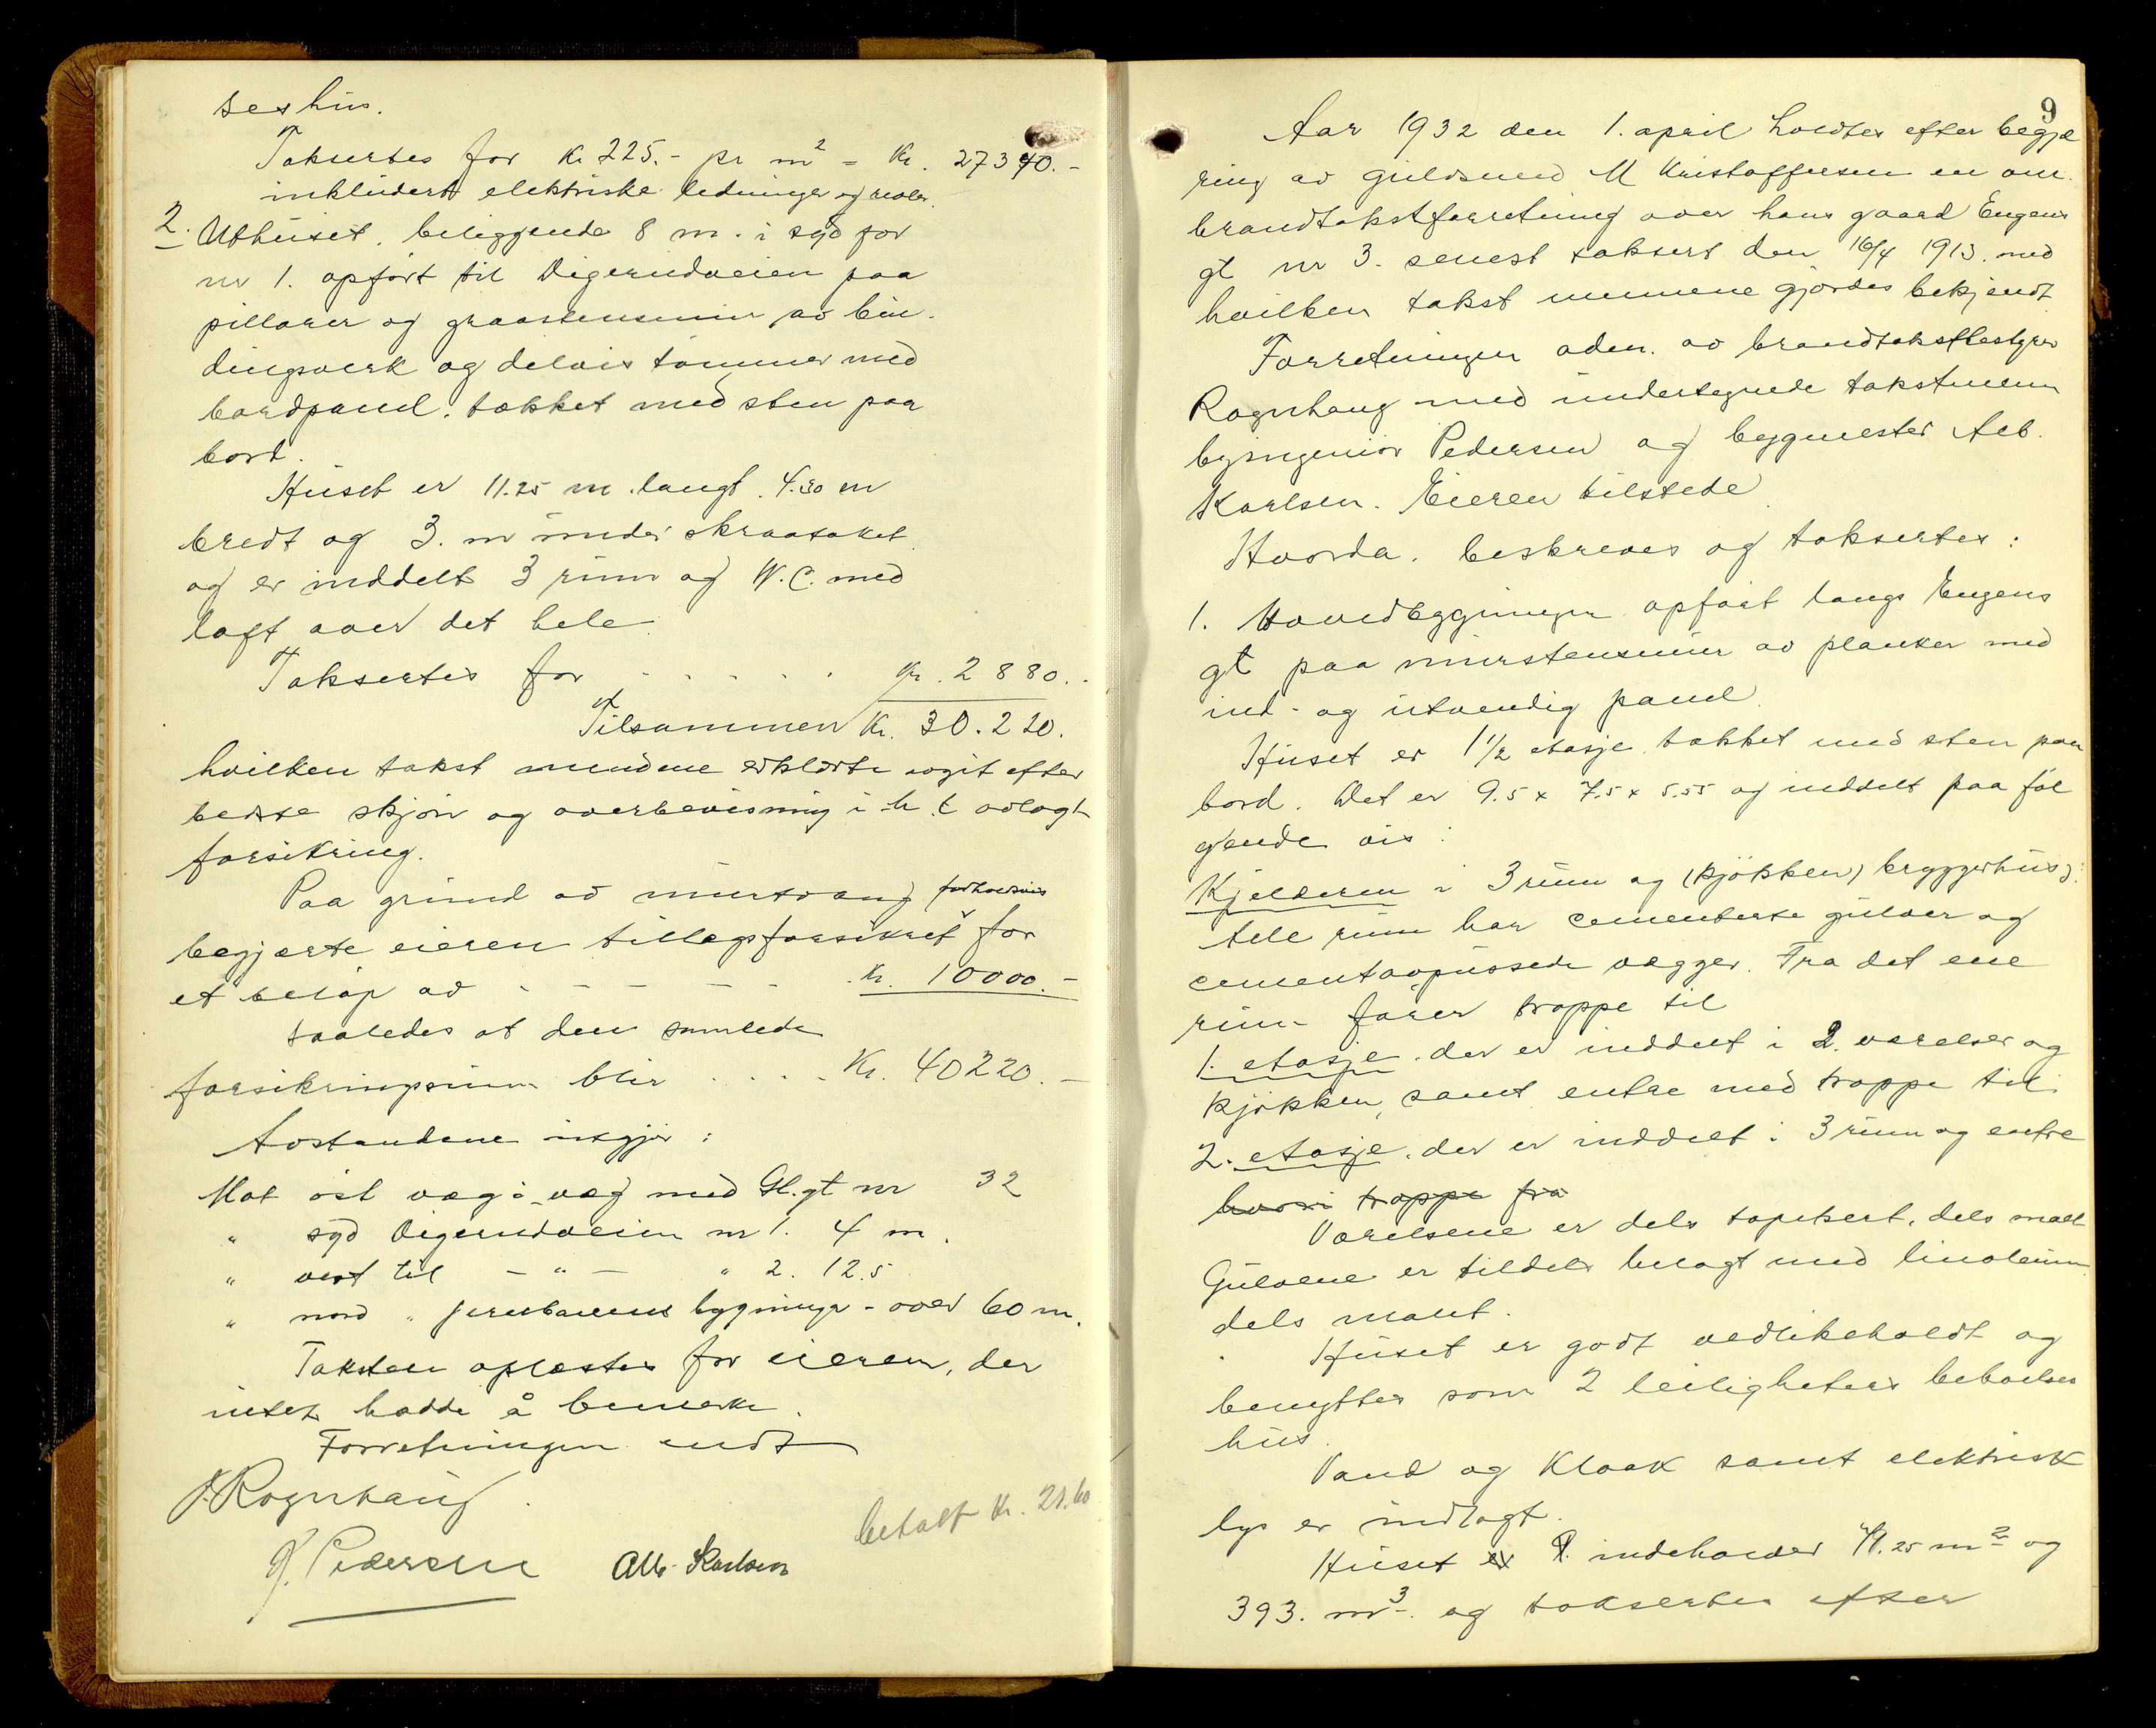 seshus.
Taksertes for Kr 225.- pr m² = Kr. 27340.-
inkludert elektriske ledninger og
2. Uthuset. beliggende 8 m. i syd for
nr 1. opført til Digerudveien paa
pillarer og graastensmur av bin-
dingsverk og delvis tømmer med
bordpanel. tækket med sten paa
bord.
Huset er 11.25 m. langt. 4.30 m
bredt og 3. m under skraataket
og er inddelt 3 rum og W.C. med
loft over det hele.
Taksertes for . . . . . Kr. 2880.-
Tilsammen Kr. 30.220.
hvilken takst mændene erklærte avgit efter
bedste skjøn og overbevisning i h.t avlagt
forsikring.
Paa grund av murtvang forholdsvis
begjærte eieren tillægsforsikret for
et beløp av - - - - - Kr. 10000.-
saaledes at den samlede
forsikringssum blir . . . . Kr. 40220.-
Avstandene utgjør:
Mot øst væg i væg med Gl.gt nr 32
" syd Digerudveien nr 1. 4 m.
" vest til - " - " 2. 12.5
" nord " jernbanens bygninger - over 60 m.
Taksten oplæstes for eieren, der
intet hadde å bemerke.
Forretningen endt
J. Rognhaug.
J. Pedersen Alb. Karlsen
betalt Kr. 21.60
9
Aar 1932 den 1. april holdtes efter begjæ
ring av guldsmed M Kristoffersen en om-
brandtakstforretning over hans gaard Engens
gt nr 3. senest taksert den 16/4 1913. med
hvilken takst mennene gjordes bekjendt.
Forretningen adm. av brandtakstbestyrer
Rognhaug med undertegnede takstmenn
byingeniør Pedersen og bygmester Alb.
Karlsen. Eieren tilstede.
Hvorda. beskreves og taksertes:
1. Hovedbygningen opført langs Engens
gt paa murstensmur av planker med
ind- og utvendig panel.
Huset er 1 1/2 etasje tækket med sten paa
bord. Det er 9.5 x 7.5 x 5.55 og inddelt paa føl
gende vis:
Kjelderen i 3 rum og (kjøkken) bryggerhus).
Alle rum har cementerte gulver og
cementavpussede vægger. Fra det ene
rum fører trappe til
1. etasje. der er inddelt i 2. værelser og
kjøkken, samt entre med trappe til
2. etasje. der er inddelt i 3 rum og entre
hvori trappe fra
Værelsene er dels tapetsert, dels malt
Gulvene er tildels belagt med linoleum
dels malt.
Huset er godt vedlikeholdt og
benyttes som 2 leiligheters beboelses
hus.
Vand og Kloak samt elektrisk
lys er indlagt.
Huset er indeholder 71.25 m² og
393. m³. og taksertes efter